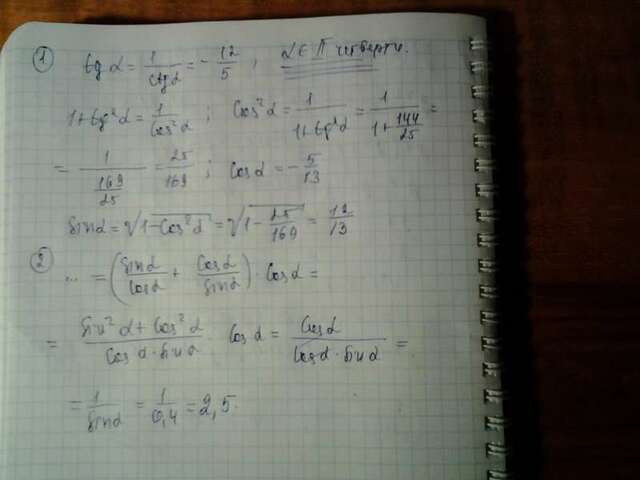 ① tg α = 1/ctg α = - 12/5 ; α ∈ II четверти.
1 + tg²α = 1/cos²α ; cos²α = 1/(1 + tg²α) = 1/(1 + 144/25) =
= 1/(169/25) = 25/169 ; cos α = - 5/13
sin α = √(1 - cos²α) = √(1 - 25/169) = 12/13
② ... = (sin α/cos α + cos α/sin α) · cos α =
= (sin²α + cos²α)/(cos α · sin α) · cos α = cos α/(cos α · sin α) =
= 1/sin α = 1/0,4 = 2,5.